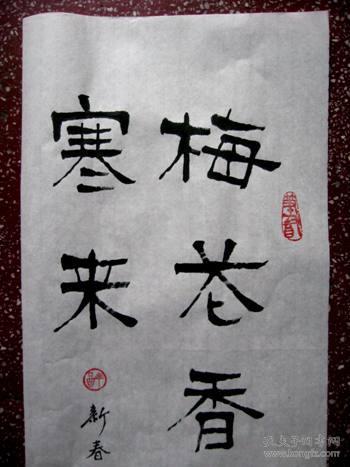 梅花香
寒来
新春
孔夫子旧书网
www.kongfz.com